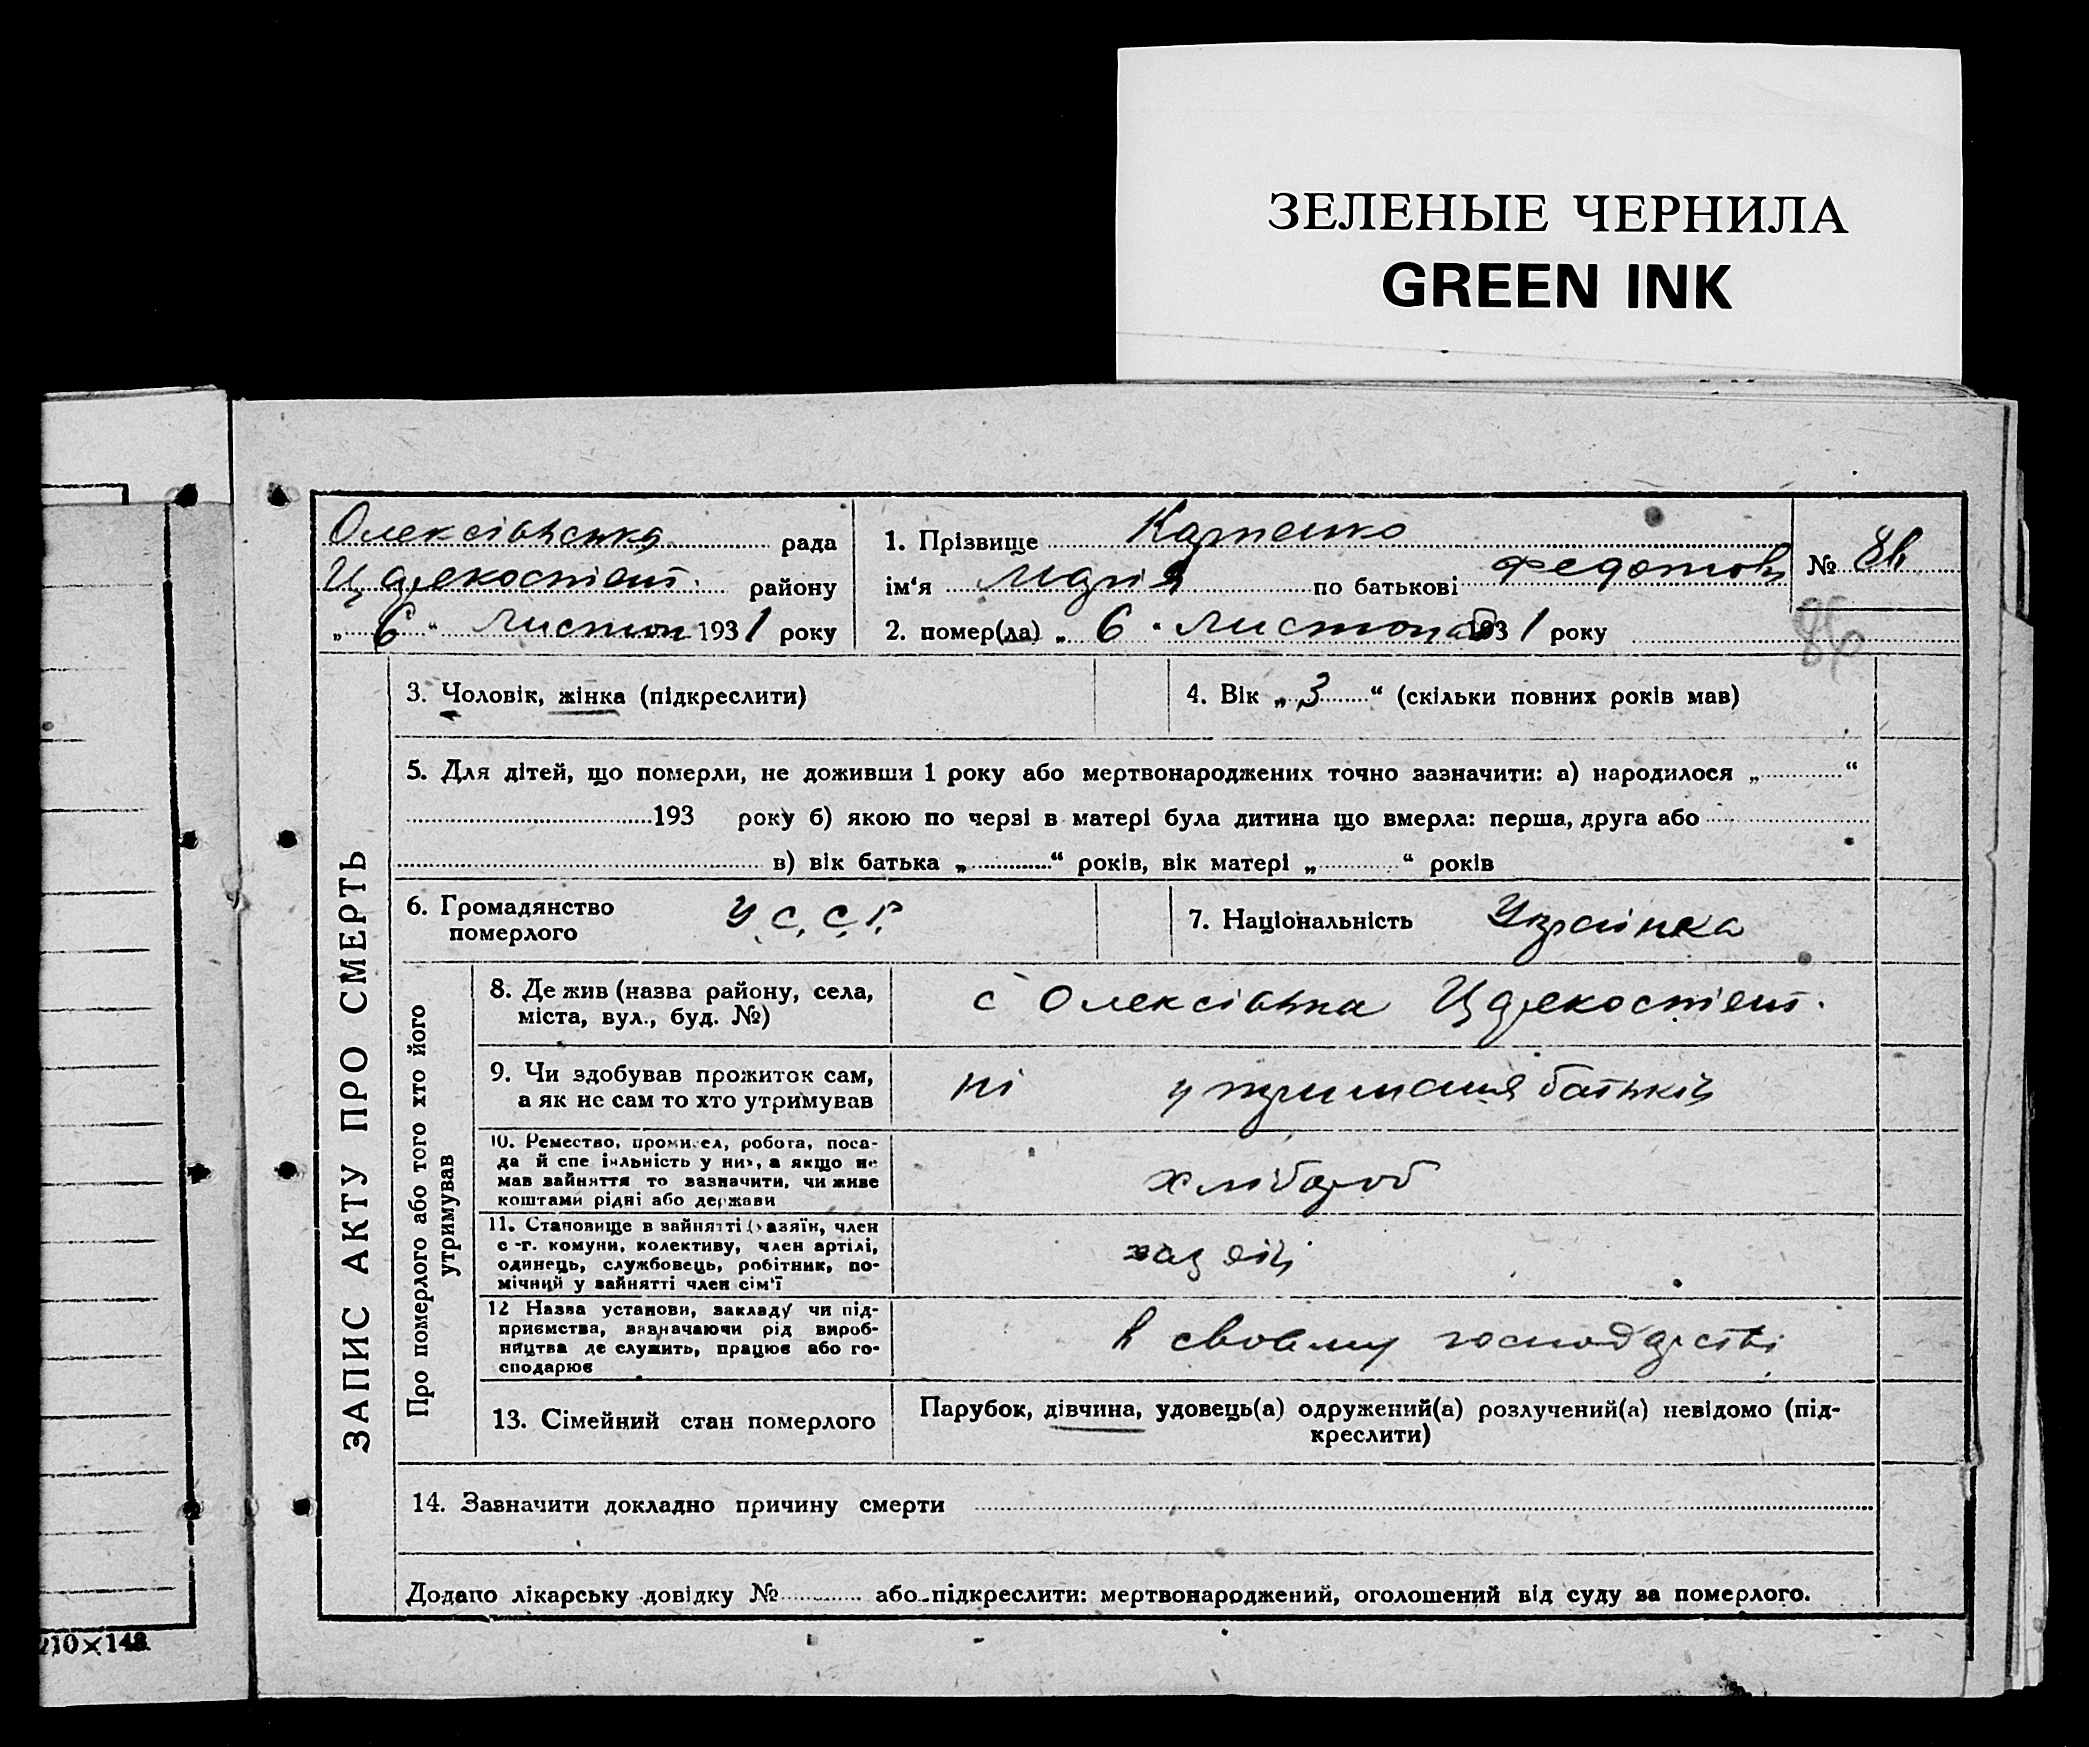 ЗЕЛЕНЫЕ ЧЕРНИЛА
GREEN INK
Олексіївська рада
Царекостянт. району
„ 6 “ Листоп 1931 року
1. Прізвище Карпенко
ім‘я Марія по батькові Федотов
2. помер(ла) „ 6 “ Листопад 1931 року
№
ЗАПИС АКТУ ПРО СМЕРТЬ
3. Чоловік, жінка (підкреслити)
4. Вік „ 3 “ (скільки повних років мав)
5. Для дітей, що померли, не доживши 1 року або мертвонароджених точно зазначити: а) народилося „ “
193 року б) якою по черзі в матері була дитина що вмерла: перша, друга або
в) вік батька „ “ років, вік матері „ “ років
6. Громадянство
померлого
У.С.С.Р.
7. Національність Українка
Про померлого або того хто його
утримував
8. Де жив (назва району, села,
міста, вул., буд. №)
с Олексіївка Царекостянт.
9. Чи здобував прожиток сам,
а як не сам то хто утримував
ні утримання батьків
10. Ремество, промисел, робота, поса-
да й спеціяльність у них, а якщо не
мав зайняття то зазначити, чи живе
коштами рідні або держави
хлібороб
11. Становище в зайнятті (хазяїн, член
с-г. комуни, колективу, член артілі,
одинець, службовець, робітник, по-
мічний у зайнятті член сім'ї
хазяїн
12 Назва установи, закладу чи під-
приємства, зазначаючи рід вироб-
ництва де служить, працює або го-
сподарює
в своєму господарстві
13. Сімейний стан померлого
Парубок, дівчина, удовець(а) одружений(а) розлучений(а) невідомо (під-
креслити)
14. Зазначити докладно причину смерти
Додано лікарську довідку № або підкреслити: мертвонароджений, оголошений від суду за померлого.
210×148